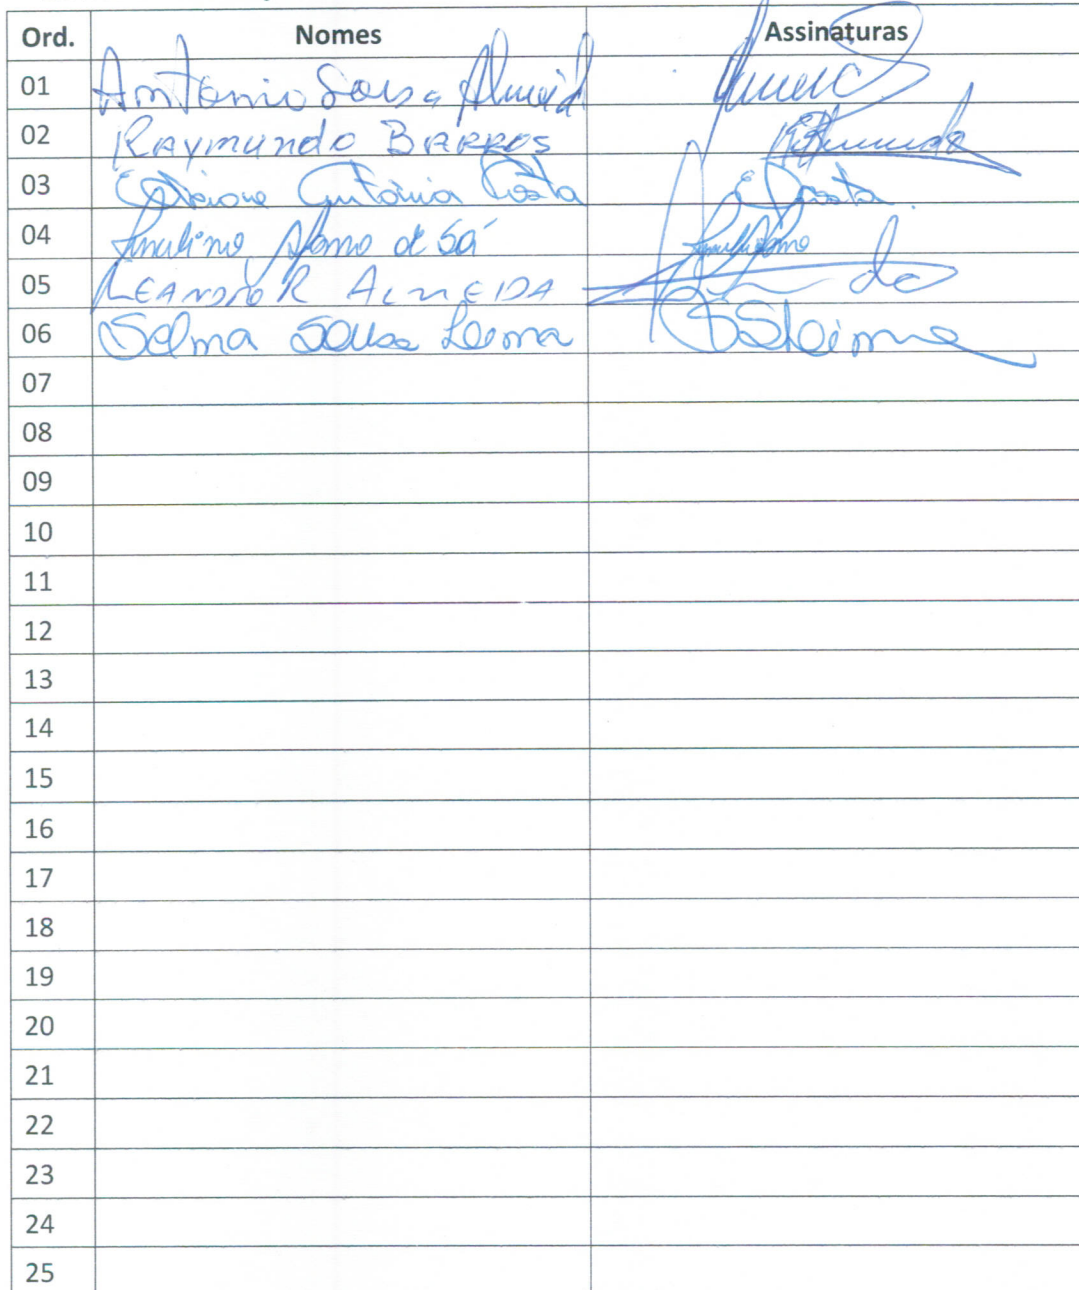 Ord. Nomes Assinaturas
01 Antonio Sousa Almeid
02 RAYMUNDO BARROS
03 Antônia Costa Costa
04 Afonso de Sá
05 LEANDRO R ALMEIDA
06 Selma Sousa Leima SSLeima
07
08
09
10
11
12
13
14
15
16
17
18
19
20
21
22
23
24
25